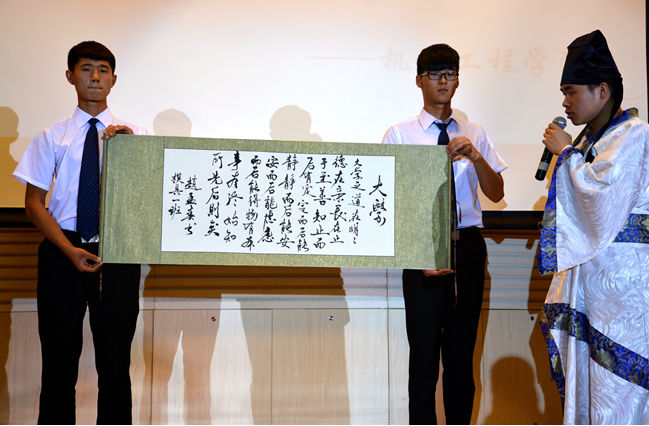 机
工程学
大學
大学之道在明々
德在亲民在止
于至善知止而
后有定定而后能
静静而后能安
安而后能虑虑
而后能得物有本
事有终始知
所先后则矣
模具一班